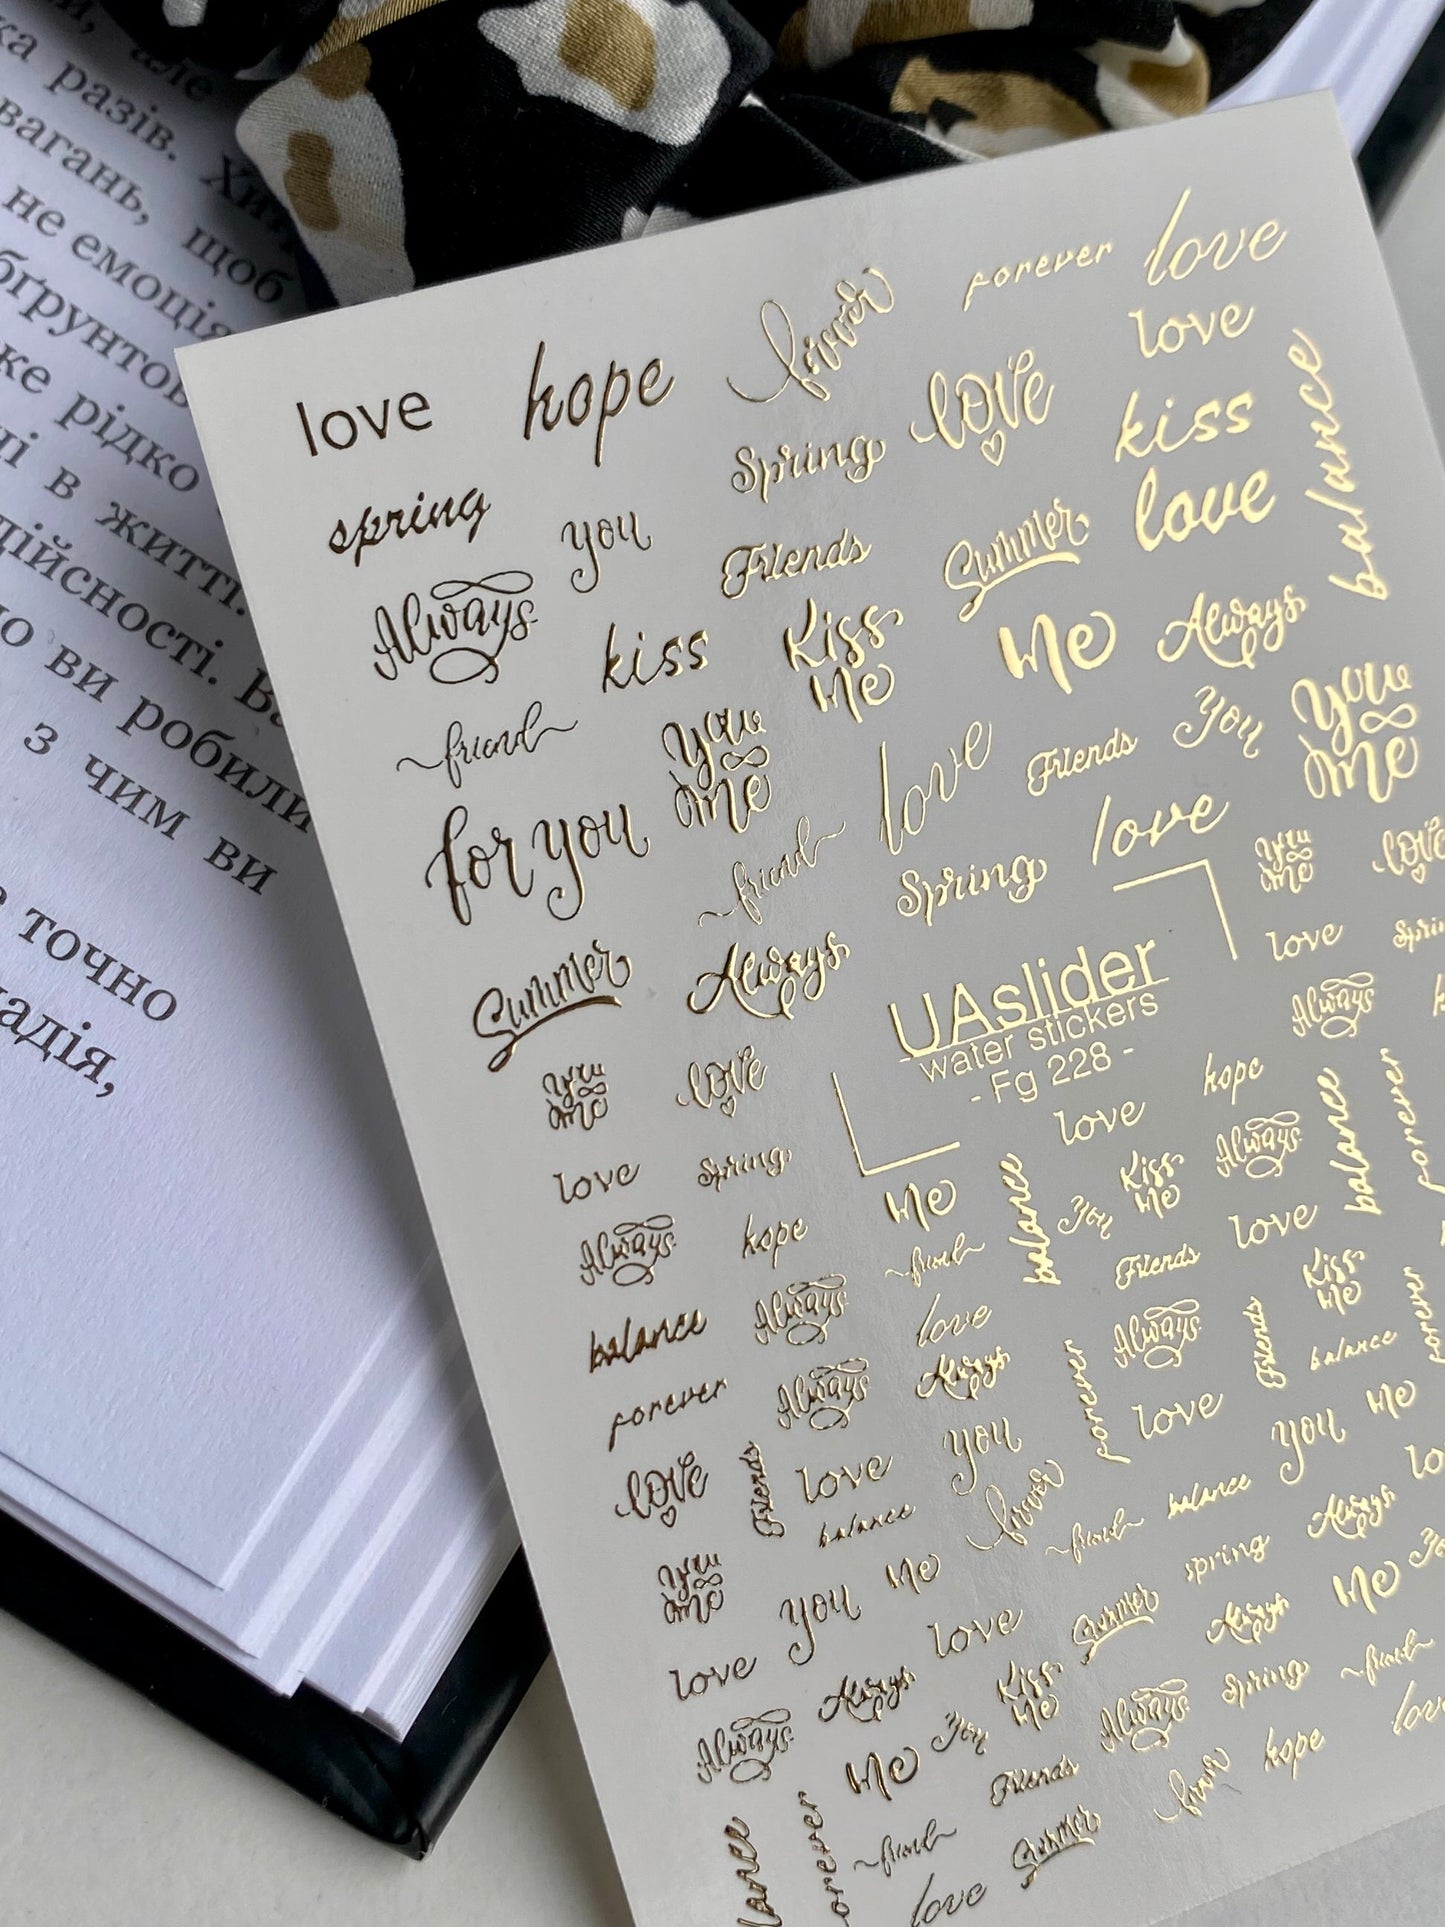 але
ка разів. Хит
вагань, щоб
не емоція
бґрунтов
же рідко
ні в житті.
дійсності. Ва
о ви робили
з чим ви
точно
надія,
love hope forever forever love
love
kiss
love
balance
spring you Spring LOVE
Always kiss Friends Summer
Kiss Me Me Always
friend You & Me love Friends You You & Me
for you friend Spring love
Summer Always
UAslider
- water stickers
- Fg 228 -
You & Me LOVE
love Spring
Always
You & Me LOVE love hope
love Spring Me balance You Kiss Me Always balance forever
Always hope friend Friends love
balance Always love Always Friends Kiss Me forever
forever Always Always forever love balance
LOVE Friends love you you Me
balance forever friend balance Always
You & Me you Me Summer spring Me
love Always love Kiss Me Always Spring friend
Always Me You Friends forever hope love
friend Summer
forever
love